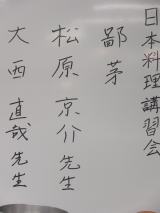 日本料理講習会
鄙茅
松原京介先生
大西直哉先生